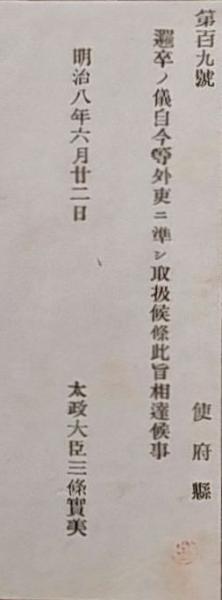 第百九號
使府縣
邏卒ノ儀自今等外吏ニ準シ取扱候條此旨相達候事
明治八年六月廿二日
太政大臣三條實美